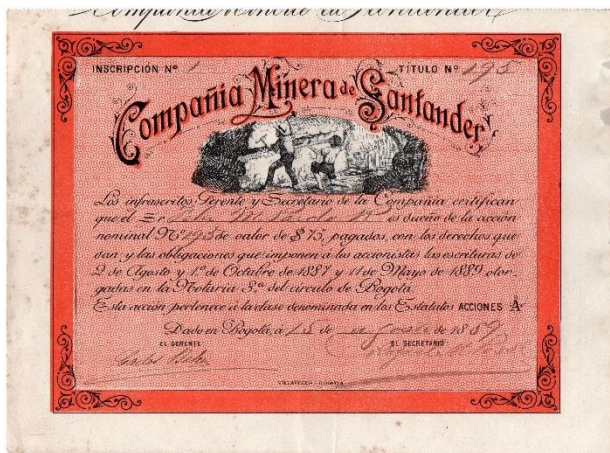 Compañia Minera de Santander
INSCRIPCIÓN Nº 1 TÍTULO Nº 195
Compañia Minera de Santander
Los infrascritos, Gerente y Secretario de la Compañia certifican
que el Sr. es dueño de la acción
nominal Nº 195 de valor de $ 75, pagados, con los derechos que
dan y las obligaciones que imponen á los accionistas las escrituras de
2 de Agosto y 1º de Octubre de 1887 y 11 de Mayo de 1889 otor-
gadas en la Notaría 3ª del círculo de Bogotá.
Esta acción pertenece á la clase denominada en los Estatutos ACCIONES A
Dado en Bogotá, á 15 de agosto de 1889
EL GERENTE EL SECRETARIO